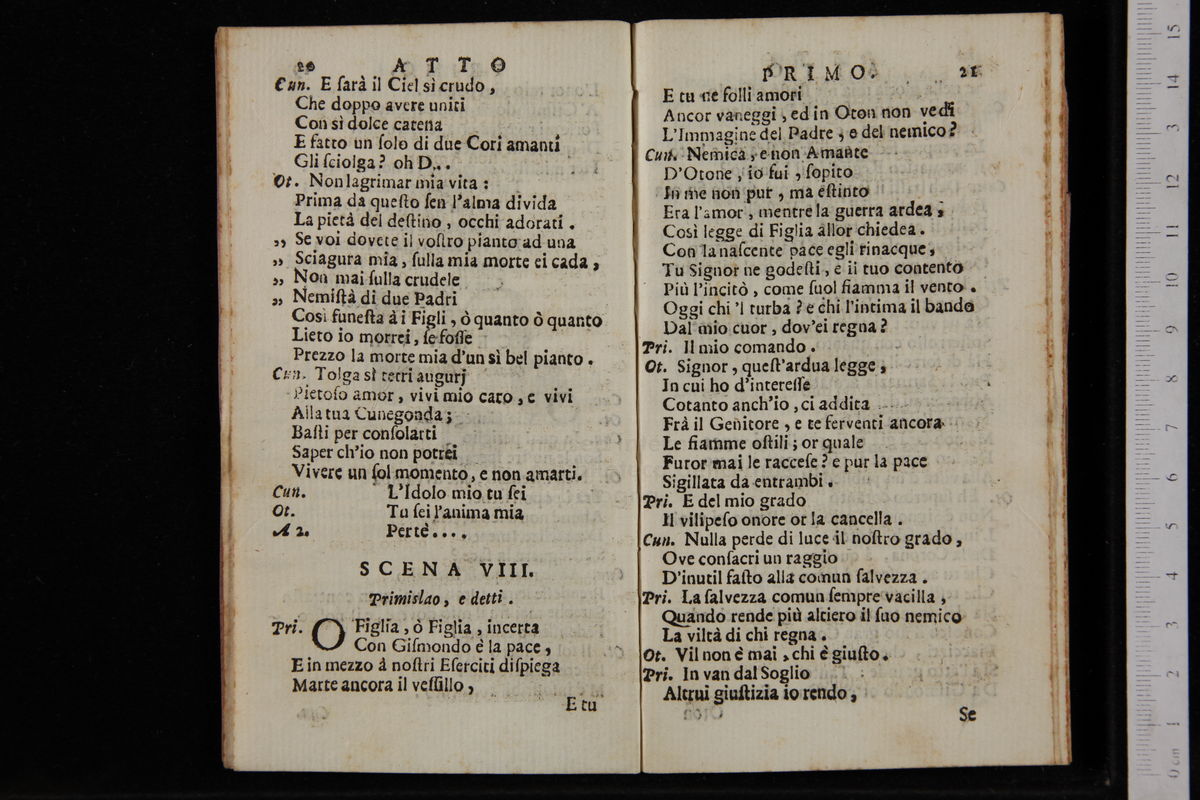 20 ATTO
Cun. E ſarà il Ciel sì crudo,
Che doppo avere uniti
Con sì dolce catena
E fatto un ſolo di due Cori amanti
Gli ſciolga? oh D...
Ot. Non lagrimar mia vita:
Prima da queſto ſen l'alma divida
La pietà del deſtino, occhi adorati.
„ Se voi dovete il voſtro pianto ad una
„ Sciagura mia, ſulla mia morte ei cada,
„ Non mai ſulla crudele
„ Nemiſtà di due Padri
Così funeſta à i Figli, ò quanto ò quanto
Lieto io morrei, ſe foſſe
Prezzo la morte mia d'un sì bel pianto.
Cun. Tolga sì tetri augurj
Pietoſo amor, vivi mio caro, e vivi
Alla tua Cunegonda;
Baſti per conſolarti
Saper ch'io non potrei
Vivere un ſol momento, e non amarti.
Cun. L'Idolo mio tu ſei
Ot. Tu ſei l'anima mia
A 2. Per tè....
SCENA VIII.
Primislao, e detti.
Pri. O Figlia, ò Figlia, incerta
Con Giſmondo è la pace,
E in mezzo à noſtri Eſerciti diſpiega
Marte ancora il veſſillo,
E tu
PRIMO. 21
E tu ne folli amori
Ancor vaneggi, ed in Oton non vedi
L'Immagine del Padre, e del nemico?
Cun. Nemica, e non Amante
D'Otone, io fui, ſopito
In me non pur, ma eſtinto
Era l'amor, mentre la guerra ardea;
Così legge di Figlia allor chiedea.
Con la naſcente pace egli rinacque,
Tu Signor ne godeſti, e il tuo contento
Più l'incitò, come ſuol fiamma il vento.
Oggi chi 'l turba? e chi l'intima il bando
Dal mio cuor, dov'ei regna?
Pri. Il mio comando.
Ot. Signor, queſt'ardua legge,
In cui ho d'intereſſe
Cotanto anch'io, ci addita
Frà il Genitore, e te ferventi ancora
Le fiamme oſtili; or quale
Furor mai le racceſe? e pur la pace
Sigillata da entrambi.
Pri. E del mio grado
Il vilipeſo onore or la cancella.
Cun. Nulla perde di luce il noſtro grado,
Ove conſacri un raggio
D'inutil faſto alla comun ſalvezza.
Pri. La ſalvezza comun ſempre vacilla,
Quando rende più altiero il ſuo nemico
La viltà di chi regna.
Ot. Vil non è mai, chi è giuſto.
Pri. In van dal Soglio
Altrui giuſtizia io rendo,
Se
15
14
13
12
11
10
9
8
7
6
5
4
3
2
1
0 cm